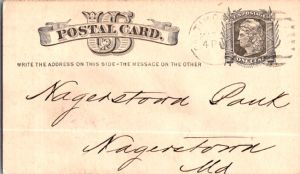 US
POSTAL CARD.
WRITE THE ADDRESS ON THIS SIDE - THE MESSAGE ON THE OTHER
ONE CENT
Nagerstown Bank
Nagerstown
Md